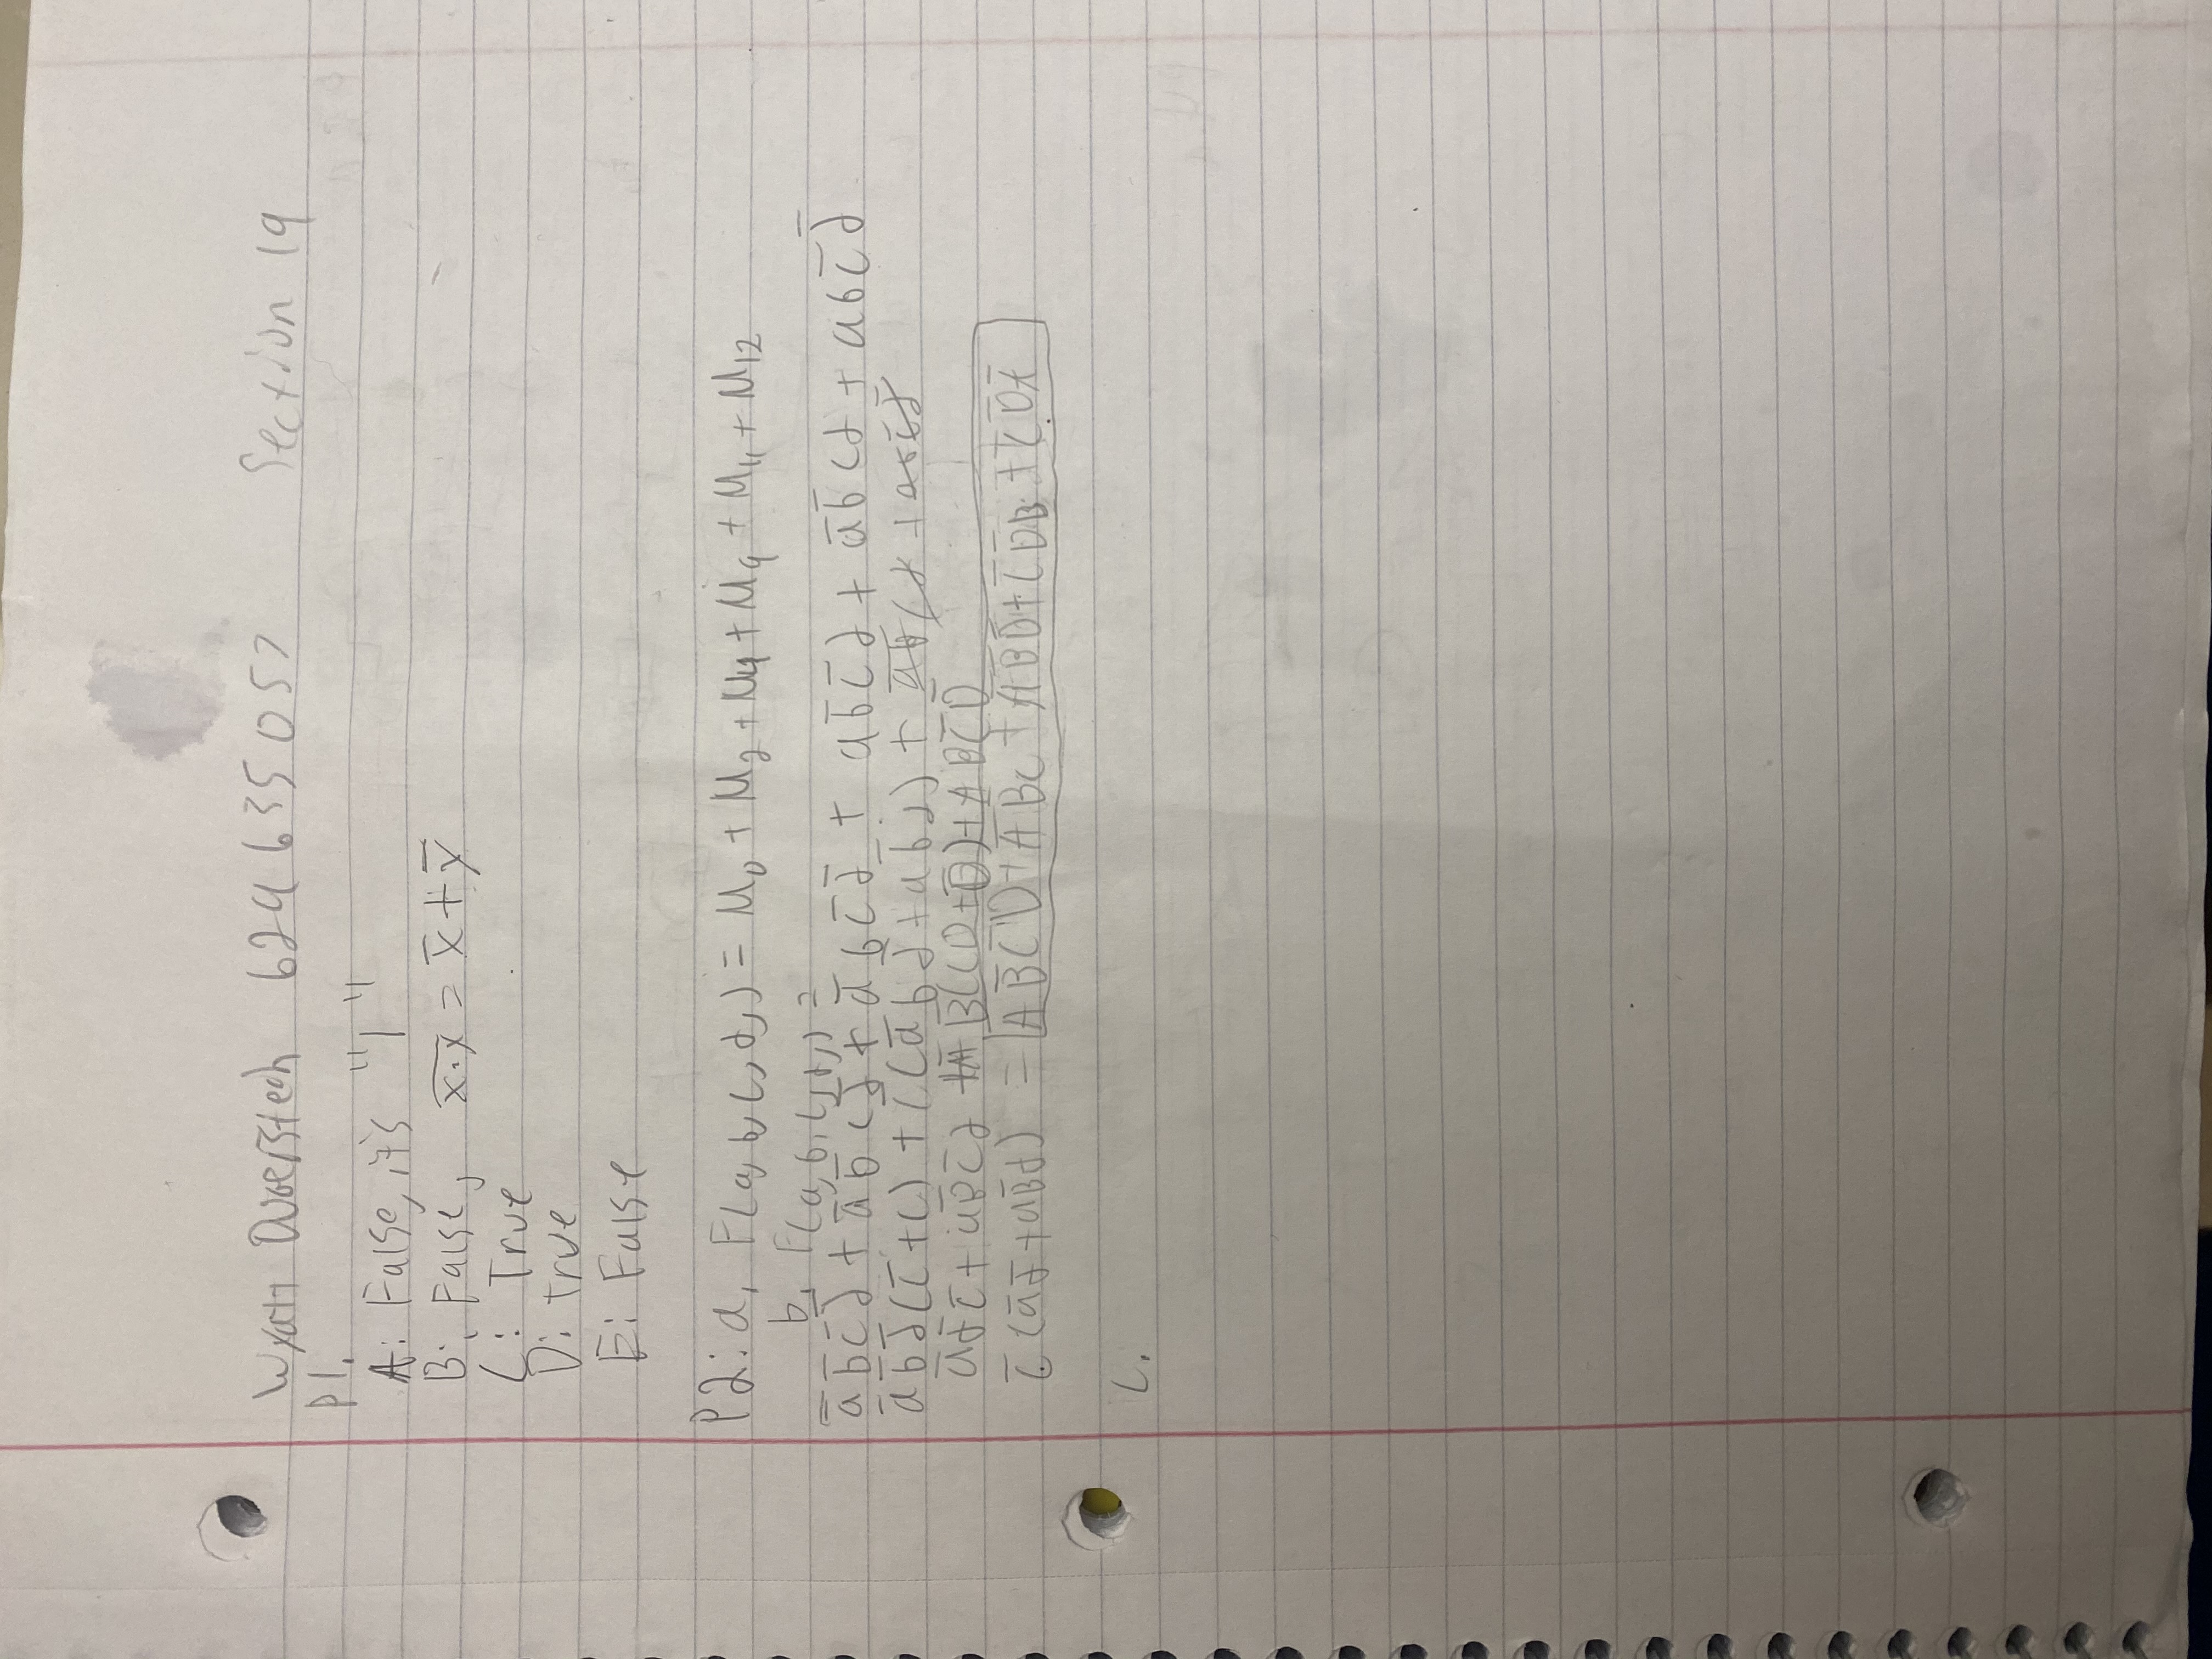 Wyatt Duerstech 629635057 Section 19
P1.
A: False, it's "1"
B: False, x̅·̅y̅ = x̅ + y̅
C: True
D: true
E: False
P2: a, F(a, b, c, d,) = M₀ + M₂ + M₄ + M₉ + M₁₁ + M₁₂
b, F(a, b, c, d,) =
a̅ b̅ c̅ d̅ + a̅ b̅ c d̅ + a̅ b c̅ d̅ + a b̅ c̅ d + a̅ b̅ c d + a b c̅ d̅
a̅ b̅ d̅ (c̅ + c) + c̅ (a̅ b d̅ + a b̅ d) +
a̅ d̅ c̅ + a B̅ c̅ d + A̅ B̅ (CD + D̅) + A B C̅ D̅
c̅ (a̅ d̅ + a B̅ d) = A B̅ C̅ D + A̅ B̅ C + A̅ B̅ D̅ + C̅ D̅ B + C̅ D̅ A̅
C.